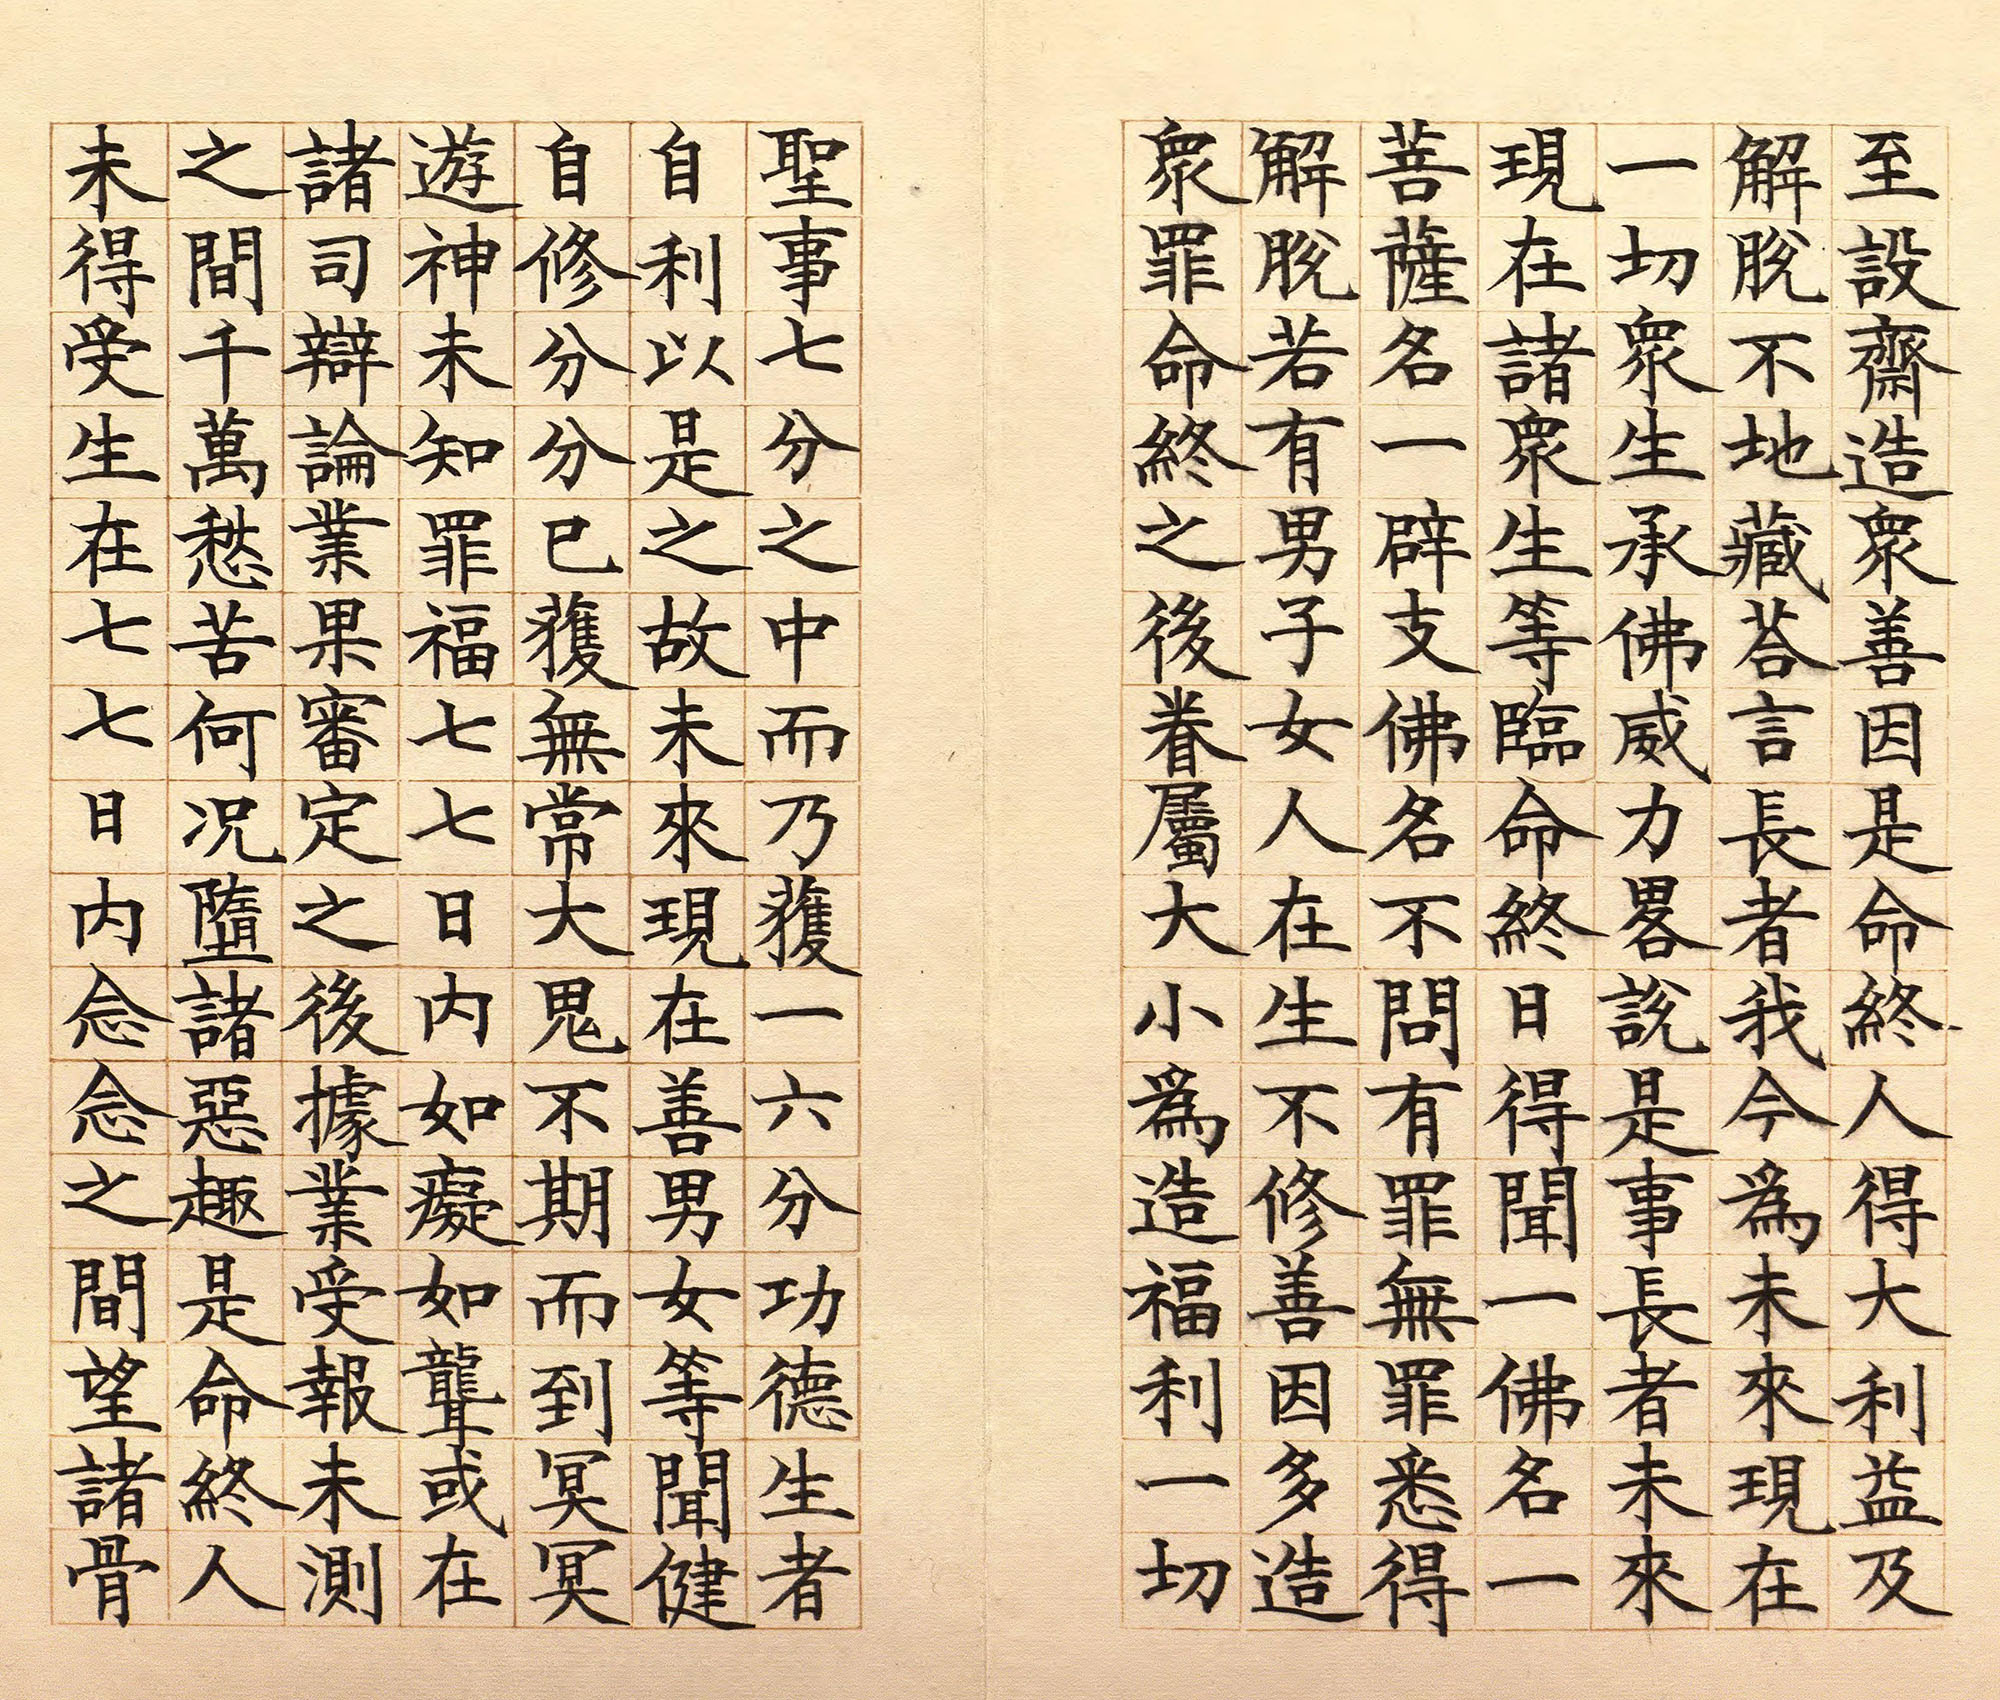 至設齋造衆善因是命終人得大利益及
解脫不地藏荅言長者我今為未來現在
一切衆生承佛威力畧說是事長者未來
現在諸衆生等臨命終日得聞一佛名一
菩薩名一辟支佛名不問有罪無罪悉得
解脫若有男子女人在生不修善因多造
衆罪命終之後眷屬大小為造福利一切
聖事七分之中而乃獲一六分功德生者
自利以是之故未來現在善男女等聞健
自修分分已獲無常大鬼不期而到冥冥
遊神未知罪福七七日內如癡如聾或在
諸司辯論業果審定之後據業受報未測
之間千萬愁苦何况墮諸惡趣是命終人
未得受生在七七日內念念之間望諸骨